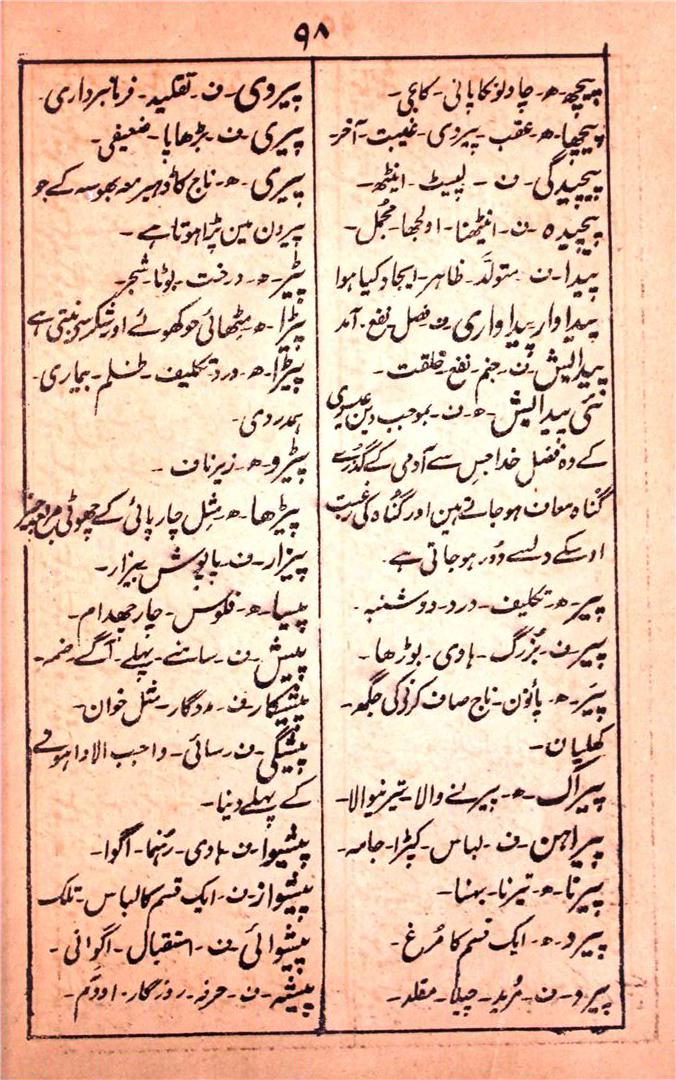 ۹۸
پیچھ - ھ - چاولونکا پانی - کاجی -
پیچھا - ھ - عقب - پیروی - غیبت - آخر -
پیچیدگی - ف - لپیٹ - اینٹھ -
پیچیدہ - ف - اینٹھنا - اولجھا - مجمل -
پیدا - ف - متولد - ظاہر - ایجاد کیا ہوا
پیداوار پیداواری - ف - فصل - نفع - آمد
پیدایش - ف - جنم - نفع - خلقت -
نئی پیدایش - ھ - ف - بموجب دین عیسوی
کے وہ فضل خدا جس سے آدمی کے گذرے
گناہ معاف ہو جاتے ہین اور گناہ کی رغبت
اوسکے دلسے دور ہو جاتی ہے -
پیر - ھ - تکلیف - درد - دوشنبہ -
پیر - ف - بزرگ - ہادی - بوڑھا -
پیر - ھ - پاؤن - ناج صاف کرنیکی جگہ -
کھلیان -
پیراک - ھ - پیرنے والا - تیرنیوالا -
پیراہن - ف - لباس - کپڑا - جامہ -
پیرنا - ھ - تیرنا - بہنا -
پیرو - ھ - ایک قسم کا مرغ -
پیرو - ف - مرید - چیلا - مقلد -
پیروی - ف - تقلید - فرمانبرداری -
پیری - ف - بڑھاپا - ضعیفی -
پیری - ھ - ناج کا ڈھیر معہ بھوسہ کے جو
پیرون مین پڑا ہوتا ہے -
پیڑ - ھ - درخت - بوٹا - شجر -
پیڑا - ھ - مٹھائی جو کھوئے اور شکر سے بنتی ہے
پیڑا - ھ - درد - تکلیف - ظلم - بیماری -
ہمدردی -
پیڑو - ھ - زیر ناف -
پیڑھا - ھ - مثل چارپائی کے چھوٹی
پیزار - ف - پاپوش - بیزار -
پیسا - ھ - فلوس - چار چھدام -
پیش - ف - سامنے - پہلے - آگے - ضمہ -
پیشکار - ف - مددگار - مثل خوان -
پیشگی - ف - رسائی - واجب الادا ہونے
کے پہلے دینا -
پیشوا - ف - ہادی - رہنما - اگوا -
پیشواز - ف - ایک قسم کا لباس - تلک
پیشوائی - ف - استقبال - اگوانی -
پیشہ - ف - حرفہ - روزگار - اودم -